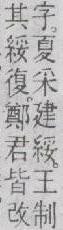 字。夏采建綏。王制
其綏復。鄭君皆改